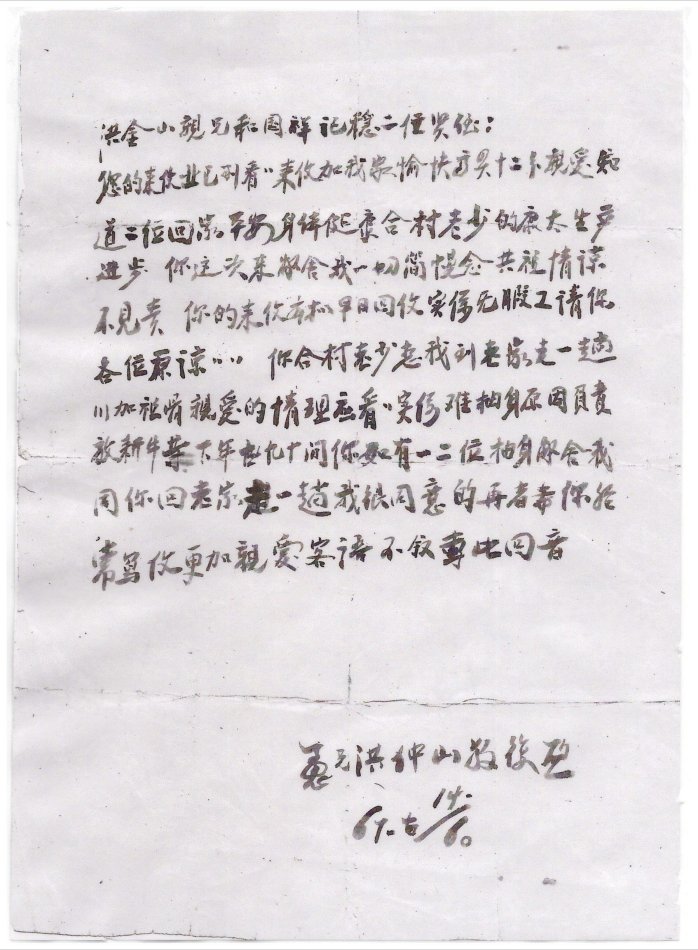 洪金山親兄和国祥記穩二位贤侄：
您的来伩业已到看〃来伩加我家愉快 十二分親爱知
道二位回家平安身体健康合村老少的康太生产
进步 你这次来舒舍我一切简慢念共祖情谅
不見责 你的来伩本拟早日回伩实係无暇工請你
各位原谅…… 你合村老少志我到老家走一趟
川加祖骨親爱的情理应看〃实係难抽身原因負責
放新牛 下年七九十间你如有一二位抽身舒舍我
同你回老家走一趟我很同意的再者希你经
常写伩更加親爱客语不叙専此回音
愚兄洪仲山敬復